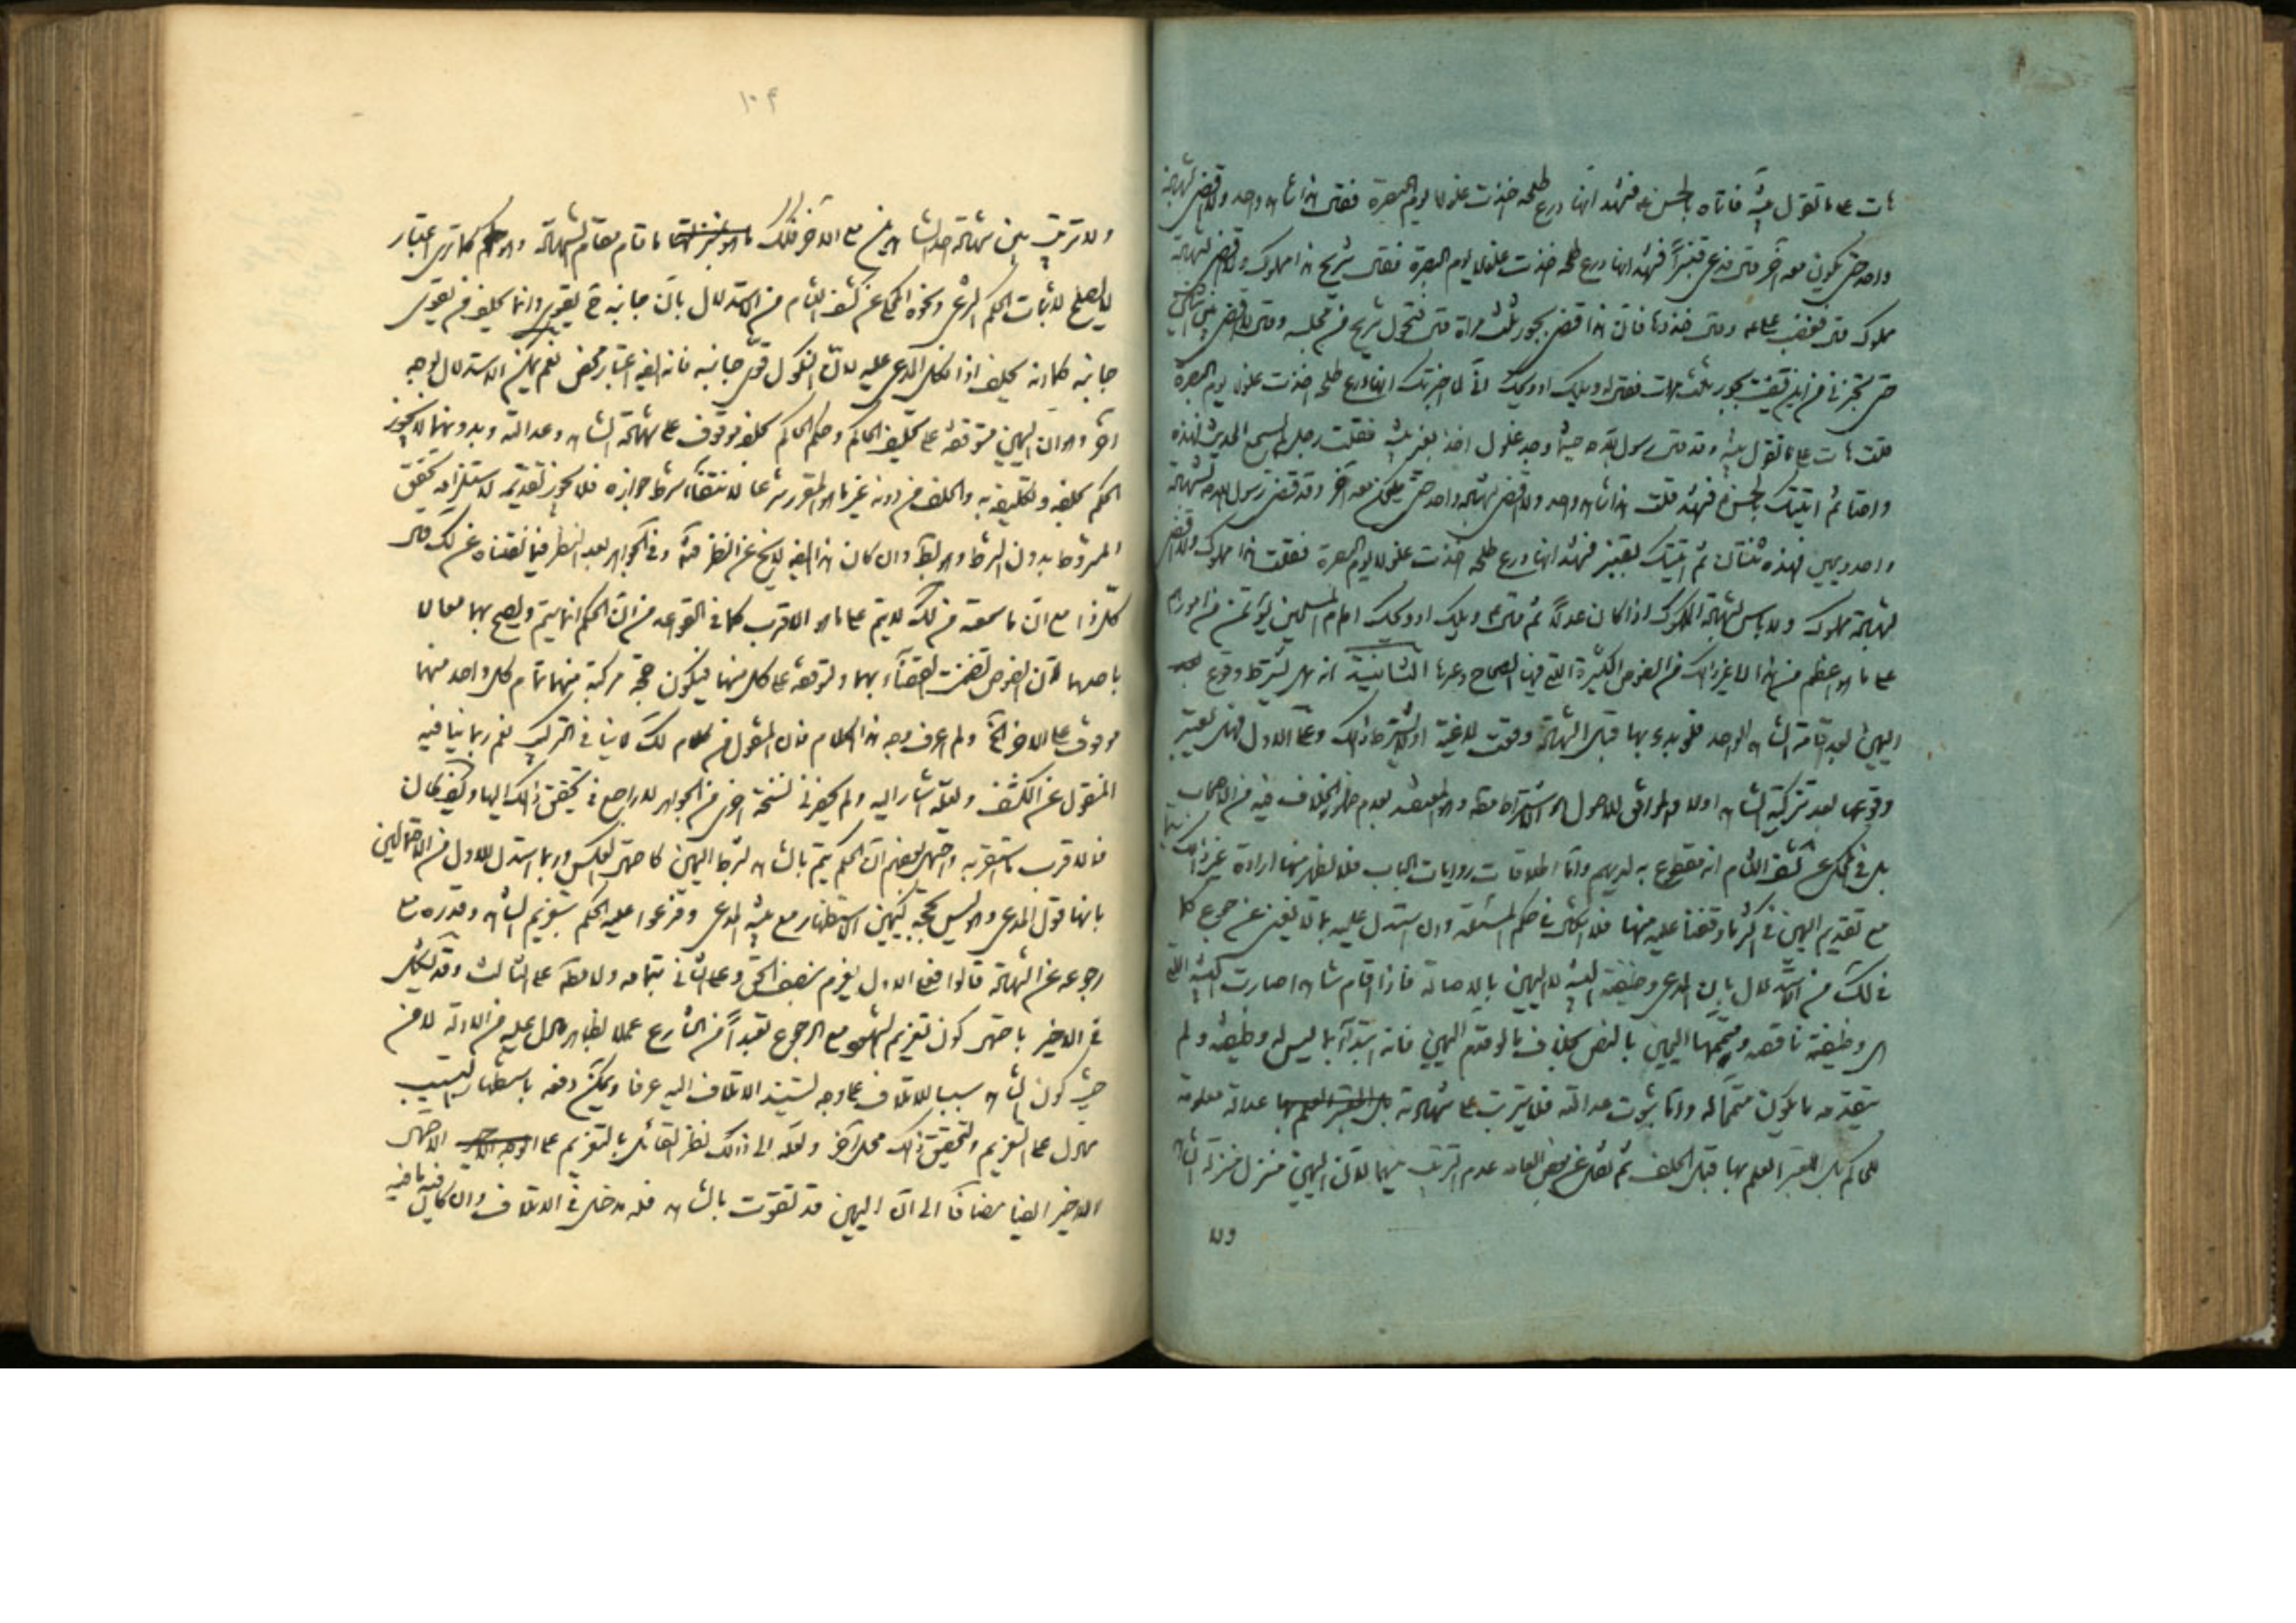 هات على ما تقول بينة فاتاه بالحسن ع فشهد انها درع طلحة اخذت غلولا يوم البصرة فقال هذا شاهد واحد ولا اقضى بشهادة
واحد حتى يكون معه آخر قال فدعى قنبراً فشهد انها درع طلحة اخذت غلولا يوم البصرة فقال شريح هذا مملوك ولا اقضى بشهادة
مملوك قال فغضب على ع وقال خذوها فان هذا قضى بجور ثلث مرات قال فتحول شريح من مجلسه وقال لا اقضى بين اثنين
حتى تخبرنى من اين قضيت بجور ثلث مرات فقال له ويلك او ويحك انى لما اخبرتك انها درع طلحة اخذت غلولا يوم البصرة
فقلت هات على ما تقول بينة وقد قال رسول الله ص حيثما وجد غلول اخذ بغير بينة فقلت رجل لم يسمع الحديث فهذه
واحدة ثم اتيتك بالحسن ع فشهد فقلت هذا شاهد واحد ولا اقضى بشهادة واحد حتى يكون معه آخر وقد قضى رسول الله ص بشهادة
واحد ويمين فهذه ثنتان ثم اتيتك بقنبر فشهد انها درع طلحة اخذت غلولا يوم البصرة فقلت هذا مملوك ولا اقضى
بشهادة مملوك ولا باس بشهادة المملوك اذا كان عدلاً ثم قال ع ويلك او ويحك امام المسلمين يؤتمن من امورهم
على ما هو اعظم من هذا الى غير ذلك من النصوص الكثيرة التى فيها الصحاح وغيرها الثانية انه هل يشترط وقوع
اليمين بعد اقامة الشاهد الواحد فلو بدء بها قبل الشهادة وقعت لاغية او لا يشترط ذلك وعلى الاول فهل يعتبر
وقوعها بعد تزكية الشاهد اولا والموافق للاصول هو الاشتراط مطلقا وهو المعتمد لعدم ظهور الخلاف فيه من الاصحاب
بل فى المحكى عن كشف اللثام انه مقطوع به لديهم واما اطلاقات روايات الباب فلا يظهر منها ارادة غير ذلك
مع تقديم اليمين فى اكثر ما وقفنا عليه منها فلا اشكال فى حكم المسئلة وان استدل عليه بما لا يغنى عن جوع كما
فى لك من الاستدلال بان المدعى وظيفته البينة لا اليمين بالاصالة فاذا اقام شاهدا صارت البينة التى
هى وظيفته ناقصة ومتممها اليمين بالنص بخلاف ما لو قدم اليمين فانه ابتدأ بما ليس له وظيفة ولم
يتقدمه ما يكون متمماً له واما ثبوت عدالته فلا يترتب على شهادته عدالة معلومة
للحاكم بل المعتبر العلم بها قبل الحلف ثم نقل عن بعض العامة عدم الترتيب بينهما لان اليمين منزل منزلة الشاهد
ولا
١٠٤
ولا ترتيب بين شهادة احد الشاهدين مع الآخر فكذلك ما قام مقام الشهادة وهو كما ترى اعتبار
لا يصلح لاثبات الحكم الشرعى ونحوه المحكى عن كشف اللثام من الاستدلال بان جانبه ح يقوى وانما يحلف من يقوى
جانبه كما انه يحلف اذا نكل المدعى عليه لان النكول قوى جانبه فانه ايضا اعتبار محض نعم يمكن الاستدلال بوجه
آخر وهو ان اليمين متوقفة على تحليف الحاكم وحكم الحاكم بحلفه موقوف على شهادة الشاهد وعدالته وبدونهما لا يجوز
الحكم بحلفه وتكليفه به والحلف من دونه غير ما هو المقرر شرعا لانتفاء شرط جوازه فلا يجوز تقديمه لاستلزامه تحقق
المشروط بدون الشرط وهو بط وان كان هذا ايضا لا يخ عن النظر فيه وفى الجواهر بعد النظر فيما نقلناه عن لك قال
كل ذا مع ان ما سمعته من لك لا يتم على ما هو الاقرب كما فى القواعد من ان الحكم انما يتم ويصح بهما معا لا
باحدهما لان النصوص تضمنت القضاء بهما ولتوقفه على كل منهما فيكون حجة مركبة منهما تمام كل واحد منهما
موقوف على الاخر الخ ولم اعرف وجه هذا الكلام فان المنقول من كلام لك لا ينافى التركيب نعم ربما ينافيه
المنقول عن الكشف ولعله اشار اليه ولم يحضرنى نسخة اخرى من الجواهر للمراجع فى تحقيق ذلك اليها وكيف كان
فالاقرب ما استقربه واحتمل بعضهم ان الحكم يتم بالشاهد بشرط اليمين كاحتمال العكس وربما استدل للاول من الاحتمالين
بانها قول المدعى وليس بحجة كيمين الاستظهار مع بينة المدعى وفرعوا عليه الحكم بتغريم الشاهد وقدره مع
رجوعه عن الشهادة قالوا فعلى الاول يغرم نصف الحق وعلى الثانى بتمامه ولا مطلقا على الثالث وقد يشكل
فى الاخير باحتمال كون تغريم الشهود مع الرجوع تعبداً من الشارع عملا بظاهر ما دل عليه من الادلة لا من
حيث كون الشاهد سببا للاتلاف على وجه يستند الاتلاف اليه عرفا ويمكن دفعه باستظهار التسبيب
مما دل على التغريم ولتحقيق ذلك محل آخر ولعله الى ذلك نظر القائل بالتغريم على الاحتمال
الاخير ايضا مضافا الى ان اليمين قد تقوت بالشاهد فله مدخل فى الاتلاف وان كان فيه ما فيه